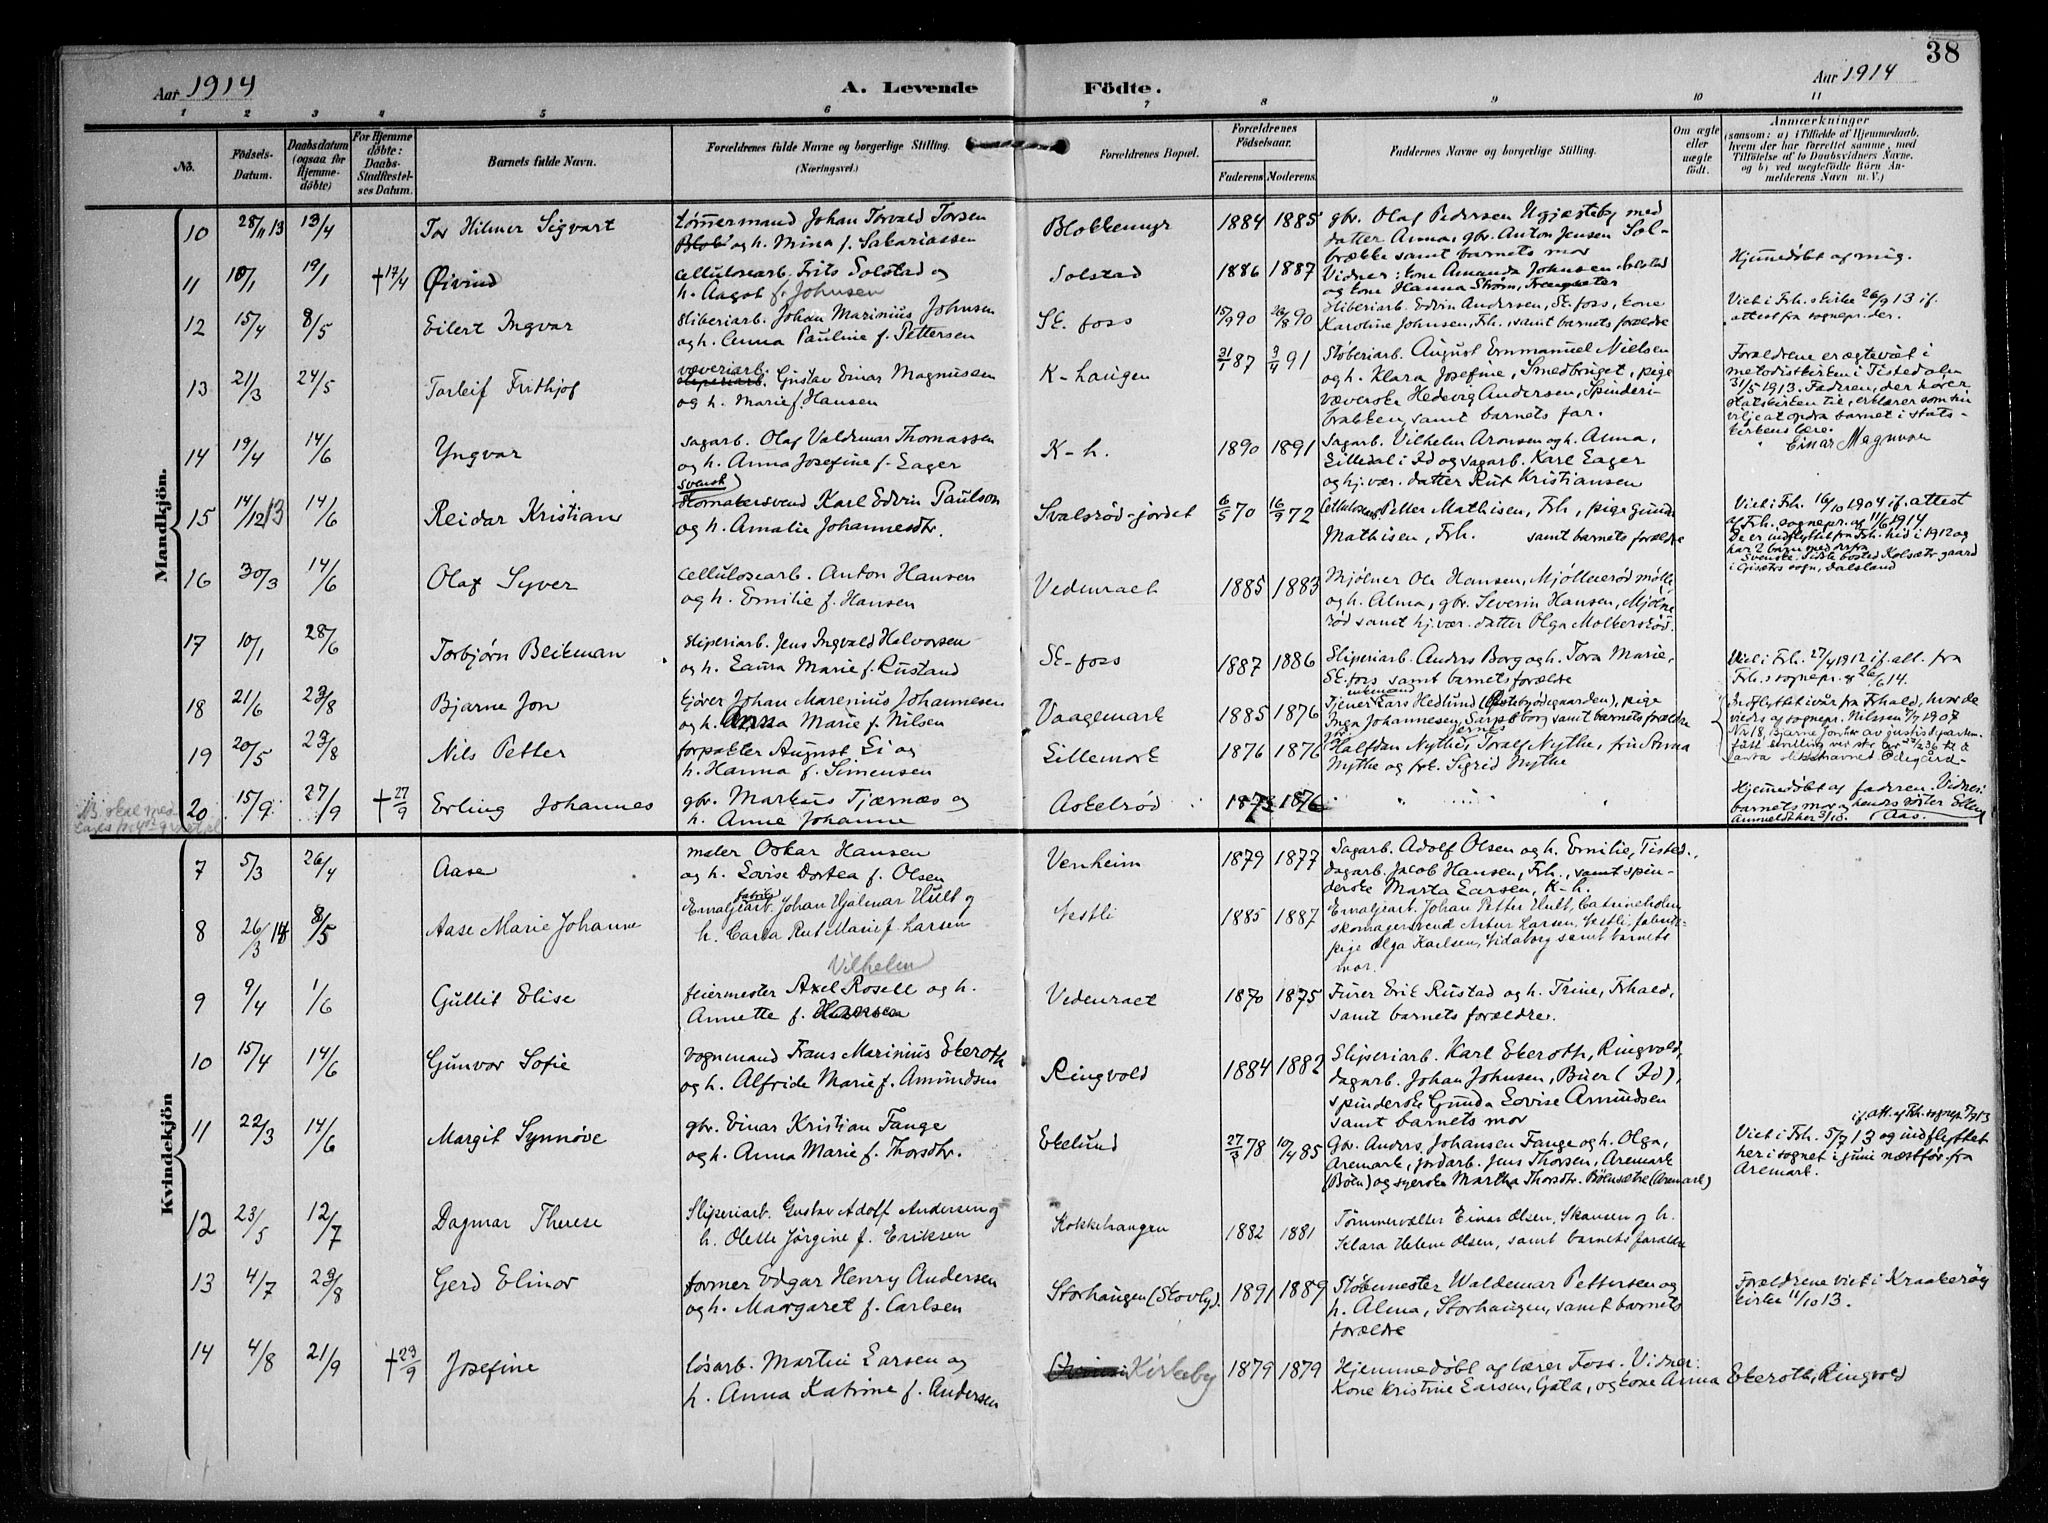 38
Aar 1914 A. Levende Födte. Aar 1914
1 2 3 4 5 6 7 8 9 10 11
No. Födsels-Datum. Daabsdatum (ogsaa for Hjemmedöbte) For Hjemmedöbte: Daabs-Stadfæstelses Datum. Barnets fulde Navn. Forældrenes fulde Navne og borgerlige Stilling. (Næringsvei.) Forældrenes Bopæl. Forældrenes Födselsaar. Faderens. Moderens. Faddernes Navne og borgerlige Stilling. Om ægte eller uægte födt. Anmærkninger (saasom: a) i Tilfælde af Hjemmedaab, hvem der har forrettet samme, med Tilföielse af to Daabsvidners Navne. og b) ved uægtefödte Börn Anmelderens Navn m. V.)
Mandkjön.
10 28/11 13 13/4 Tor Hilmer Sigvart
Tømmermand Johan Torvald Torsen
og h. Mina f. Sakariassen
Blokkemyr 1884 1885
gbr. Olaf Pedersen med
datter Anna, gbr. Anton Jensen Sol-
brække samt barnets mor
11 10/1 19/1 †17/4 Øivind
Cellulosearb. Frits Solstad og
h. Aagot f. Johnsen
Solstad 1886 1887
Vidner: kone Amanda Johnsen, Solstad
og kone Hanna Strøm,
Hjemmedøbt af mig.
12 15/4 8/5 Eilert Ingvar
Sliberiarb. Johan Marinius Johnsen
og h. Anna Pauline f. Pettersen
Sk. foss 15/9 90 26/8 90
Sliberiarb. Edvin Andersen, Sk. foss, kone
Karoline Johnsen, Frh., samt barnets forældre
Viet i Frh.s kirke 26/9 13 if.
attest fra sognepr. der.
13 21/3 24/5 Torleif Frithjof
væveriarb.
sliperiarb. Gustav Einar Magnusen
og h. Marie f. Hansen
K-haugen 31/1 87 3/4 91
Støberiarb. August Emmanuel Nielsen
og h. Klara Josefine, Smedbruget, pige
væverske Hedevig Andersen, Spinderi-
brakken, samt barnets far.
Forældrene er ægteviet i
metodistkirken i Tistedalen
31/5 1913. Faderen, der hører
statskirken til, erklærer som sin
vilje at opdra barnet i stats-
kirkens lære.
Einar Magnusen
14 19/4 14/6 Yngvar
sagarb. Olaf Valdemar Thomassen
og h. Anna Josefine f. Lager
K-h. 1890 1891
Sagarb. Vilhelm Aronsen og h. Anna,
Lilledal i Id og sagarb. Karl Lager
og hj.vær. datter Rut Kristiansen
15 14/12 13 14/6 Reidar Kristian
svensk
Skomakersvend Karl Edvin Paulson
og h. Amalie Johannesdtr.
Svalsrød-jordet 6/5 70 16/9 72
Cellulosearb. Petter Mathisen, Frh., pige Gunda
Mathisen, Frh. samt barnets forældre
Viet i Frh. 16/10 1904 if. attest
af Frh. sognepr. af 11/6 1914
De er indflyttet fra Frh. hid i 1912 og
har 2 barn med
Svenske. Sidste bosted gaard
sogn, Dalsland
16 30/3 14/6 Olaf Syver
Cellulosearb. Anton Hansen
og h. Emilie f. Hansen
Vedenract 1885 1883
Mjølner Ole Hansen, Mjølnerød mølle,
og h. Alma, gbr. Severin Hansen, Mjølne-
rød samt hj.vær. datter Olga
17 10/1 28/6 Torbjørn Blikman
Sliperiarb. Jens Ingvald Halvorsen
og h. Laura Marie f. Rustand
Sk-foss 1887 1886
Sliperiarb. Anders Borg og h. Tora Marie,
Sk. foss samt barnets forældre
Viet i Frh. 27/4 1912 if. att. fra
Frh.s sognepr. 26/6 14.
18 21/6 23/8 Bjarne Jon
kjører Johan Marenius Johannesen
og h. Anna Marie f. Nilsen
Vaagemark 1885 1876
Tjener Lars Hedlund, pige
Inga Johannesen, Sarpsborg samt barnets forældre
Indflyttet ivår fra Frhald, hvor de
viedes af sognepr. Nilssen 1907
19 20/5 23/8 Nils Petter
forpakter August Li og
h. Hanna f. Simensen
Lillemork 1876 1876
Halfdan Nythe, Toralf Nythe, fru Anna
Nythe og frk. Sigrid Nythe
20 15/9 27/9 †27/9 Erling Johannes
gbr. Markus Tjærnæs og
h. Anne Johanne
Askelrød 1873 1876
Hjemmedøbt af faderen. Vidner:
barnets mor og hendes søster Ellen
Anmeldt her 3/10. Aas.
Kvindekjön
7 5/3 26/4 Aase
maler Oskar Hansen
og h. Lovise Dortea f. Olsen
Venheim 1879 1877
Sagarb. Adolf Olsen og h. Emilie, Tisted.,
dagarb. Jacob Hansen, Frh., samt spin-
derske Marta Larsen, K-h.
8 26/3 14 8/5 Aase Marie Johanne
fabrik
Emaljearb. Johan Hjalmar Hult og
h. Carla Rut Marie f. Larsen
Vestli 1885 1887
Emaljearb. Johan Petter Hult, Catrineholm
skomagersvend Artur Larsen, Vestli, fabrik-
pige Olga Karlsen, Vidaborg samt barnets
mor.
9 9/4 1/6 Gullit Elise
Vilhelm
feiermester Axel Rosell og h.
Annette f. Hansen
Vedenract 1870 1875
Furer Erik Rustad og h. Trine, Frhald,
samt barnets forældre.
10 15/4 14/6 Gunvor Sofie
vognmand Frans Marinius Ekeroth
og h. Alfride Marie f. Amundsen
Ringvold 1884 1882
Sliperiarb. Karl Ekeroth, Ringvold,
dagarb. Johan Johnsen, Buer (Id),
spinderske Gunda Lovise Amundsen
samt barnets mor
11 22/3 14/6 Margit Synnøve
gbr. Einar Kristian Tange
og h. Anna Marie f. Thorsdtr.
Ekelund 27/3 78 10/4 85
Gbr. Anders Johansen Tange og h. Olga,
Aremark, jordarb. Jens Thorsen, Aremark
(Bøen) og syerske Martha Thorsdtr. Bøensætre (Aremark)
if. att. af Frh. sognep. 7/9 13
Viet i Frh. 5/7 13 og indflyttet
her i sognet i juni næstfør. fra
Aremark.
12 23/5 12/7 Dagmar Therese
Sliperiarb. Gustav Adolf Andersen og
h. Olette Jørgine f. Eriksen
Kokkehaugen 1882 1881
Tømmervælter Einar Olsen, Skansen og h.
Klara Helene Olsen, samt barnets forældre
13 4/7 23/8 Gerd Elinor
former Edgar Henry Andersen
og h. Margaret f. Carlsen
Storhaugen (Skovly). 1891 1889
Støbemester Waldemar Pettersen og
h. Alma, Storhaugen, samt barnets
forældre
Forældrene viet i Kraakerøy
kirke 11/10 13.
14 4/8 21/9 †29/9 Josefine
løsarb. Martin Larsen og
h. Anna Katrine f. Andersen
Kirkeby 1879 1879
Hjemmedøbt af lærer Foss. Vidner:
Kone Kristine Larsen, Gata, og kone Anna Ekeroth, Ringvold